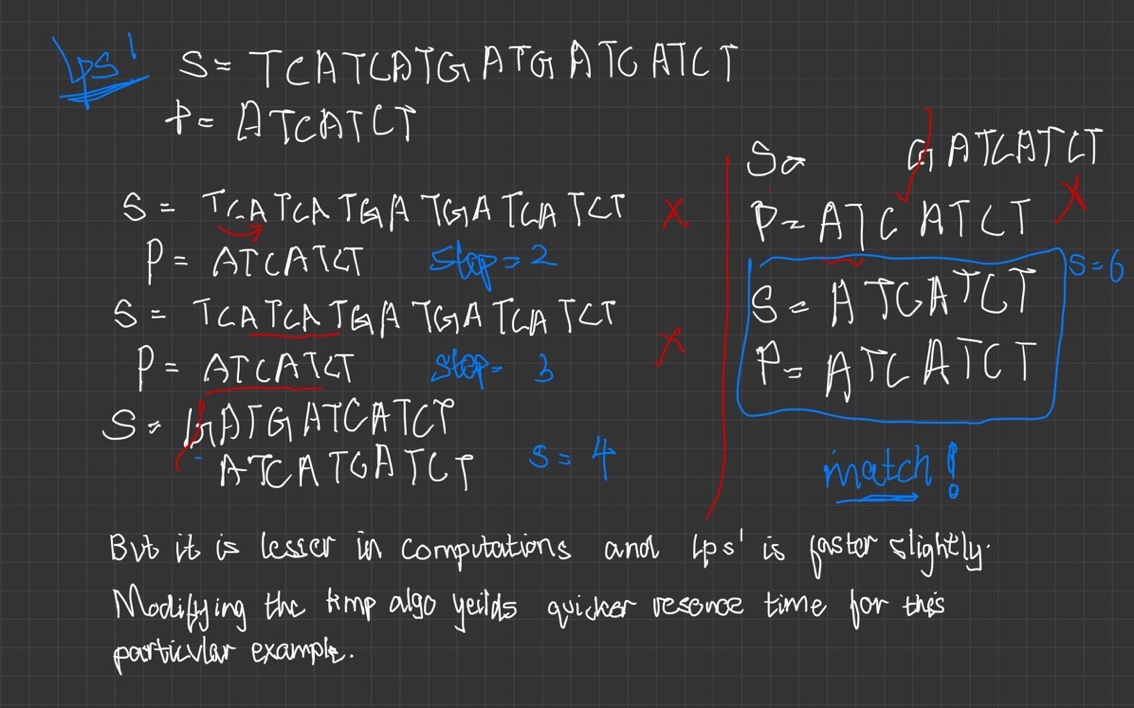 lps'
S = TCATCATGATGATCATCT
P = ATCATCT
S = TCATCATGATGATCATCT X
P = ATCATCT step = 2
S = TCATCATGATGATCATCT X
P = ATCATCT step = 3
S = GATGATCATCT
ATCATGATCT S = 4
S= GATCATCT
P = ATCATCT X
S = 6
S = ATCATCT
P = ATCATCT
match!
But it is lesser in computations and lps' is faster slightly.
Modifying the kmp algo yeilds quicker resonce time for this
particular example.